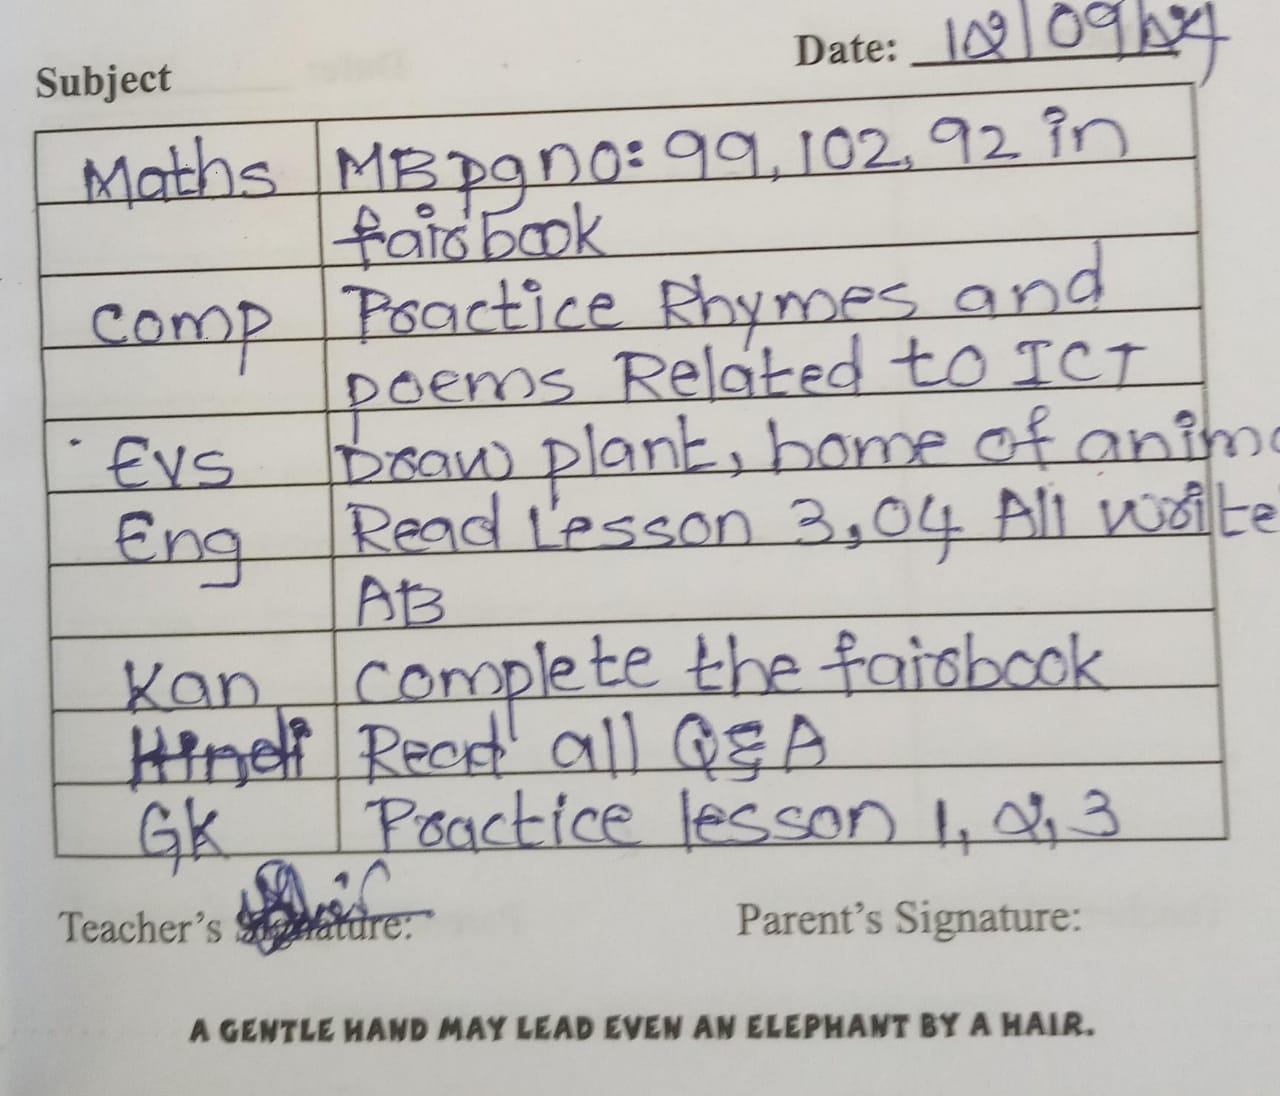 Date: 12/09/24
Subject
Maths MB pg no: 99, 102, 92 in
fairbook
Comp Practice Rhymes and
poems Related to ICT
EVS Draw plant, home of anima
Eng Read Lesson 3, 04 All write
AB
Kan complete the fairbook
Hindi Read all Q&A
GK Practice lesson 1, 2, 3
Teacher's Signature:
Parent's Signature:
A GENTLE HAND MAY LEAD EVEN AN ELEPHANT BY A HAIR.